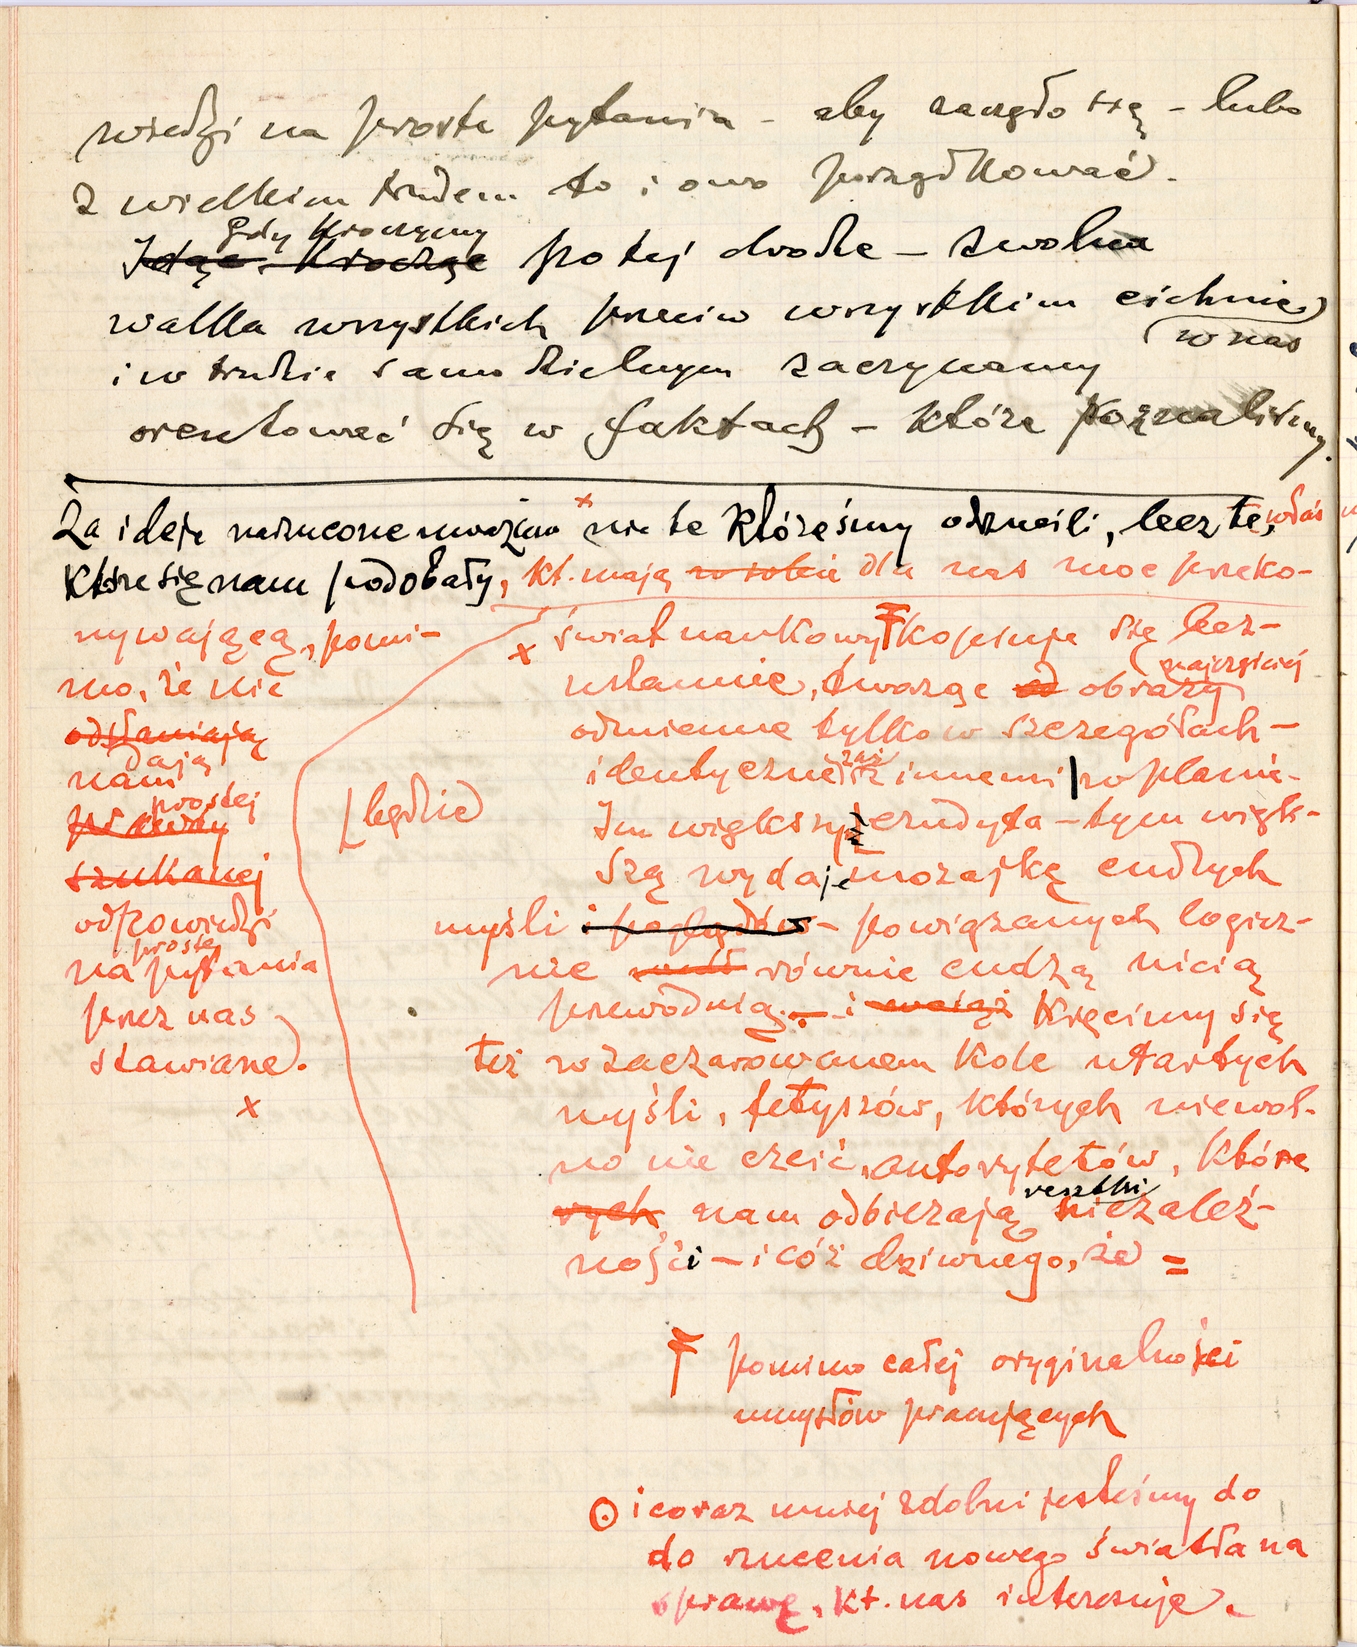 wiedzi na proste pytania – aby zaczęło się – lubo
z wielkim trudem to i owo porządkować.
Gdy kroczymy
Idąc, krocząc po tej drodze – zwolna
walka wszystkich przeciw wszystkim cichnie
w nas
i w trudzie samodzielnym zaczynamy
orientować się w faktach – które poznaliśmy.
Za ideje narzucone uważam x nie te któreśmy odrzucili, lecz te, właś
które się nam podobały, kt. mają w sobie dla nas moc przeko-
nywającą, pomi-
mo, że nie
odsłaniają
dają
nam
prostej
szukanej
odpowiedzi
proste
na pytania
przez nas
stawiane.
x
[będzie
x świat naukowy kopjuje się bez-
ustannie, tworząc od obrazy
najczęściej
odmienne tylko w szczegółach –
identyczne zaś z innemi w planie.
Im większy erudyta – tym więk-
szą wydaje mozajkę cudzych
myśli i poglądów – powiązanych logicz-
nie równie cudzą nicią
przewodnią. – i kręcimy się
też w zaczarowanem kole utartych
myśli, fetyszów, których niewol-
no nie czcić, autorytetów, które
rych nam odbierają resztki niezależ-
ności – i cóż dziwnego, że =
pomimo całej oryginalności
umysłów pracujących
⊙ i coraz mniej zdolni jesteśmy do
do rzucenia nowego światła na
sprawę, kt. nas interesuje.